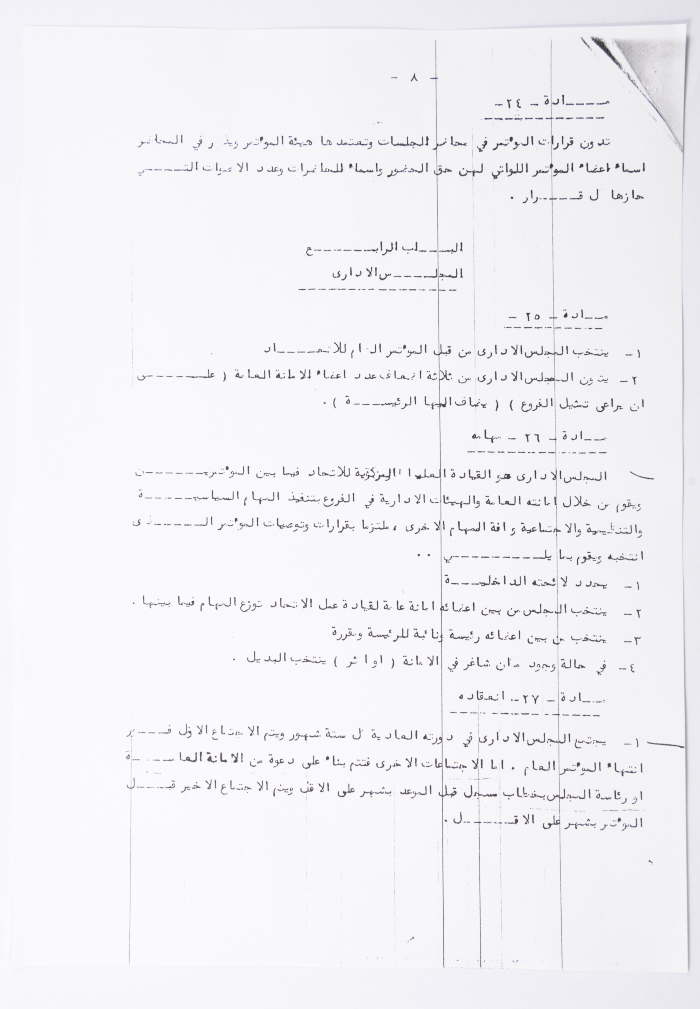 - ٨ -
مـــادة - ٢٤-
تدون قرارات المؤتمر في محاضر الجلسات وتعتمدها هيئة المؤتمر ويذكر في المحاضر
اسماء اعضاء المؤتمر اللواتي لهن حق الحضور واسماء الحاضرات وعدد الاصوات التـــي
حازها كل قـــرار .
البـــاب الرابـــع
المجلـــس الادارى
مـــادة - ٢٥ -
١- ينتخب المجلس الادارى من قبل المؤتمر العام للاتحـــاد
٢- يتكون المجلس الادارى من ثلاثة اضعاف عدد اعضاء الامانة العامة ( علـــى
ان يراعى تمثيل الفروع ) ( يضاف اليها الرئيســـة ) .
مـــادة - ٢٦ - مهامه
المجلس الادارى هو القيادة العليا المركزية للاتحاد فيما بين المؤتمريـــن
ويقوم من خلال امانته العامة والهيئات الادارية في الفروع بتنفيذ المهام السياسيـــة
والتنظيمية والاجتماعية وكافة المهام الاخرى ، ملتزما بقرارات وتوصيات المؤتمر الـــذى
انتخبه ويقوم بما يلـــي . .
١- يحدد لائحته الداخليـــة
٢- ينتخب المجلس من بين اعضائه امانة عامة لقيادة عمل الاتحاد توزع المهام فيما بينها .
٣- ينتخب من بين اعضائه رئيسة ونائبة للرئيسة ومقررة
٤- في حالة وجود مكان شاغر في الامانة ( او اكثر ) ينتخب البديل .
مـــادة - ٢٧- انعقاده
١- يجتمع المجلس الادارى في دورته العادية كل ستة شهور ويتم الاجتماع الاول فـــور
انتهاء المؤتمر العام . اما الاجتماعات الاخرى فتتم بناء على دعوة من الامانة العامـــة
او رئاسة المجلس بخطاب مسجل قبل الموعد بشهر على الاقل ويتم الاجتماع الاخير قبـــل
المؤتمر بشهر على الاقـــل .